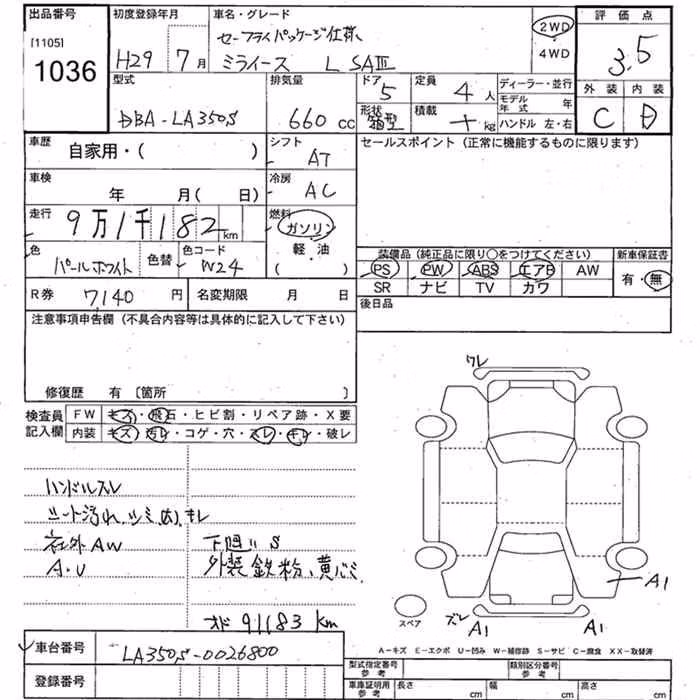 出品番号
[1105]
1036
初度登録年月
H29 7月
車名・グレード
セーフティパッケージ仕様
ミライース L SAⅢ
2WD
4WD
評価点
3.5
外装 内装
C D
型式
DBA-LA350S
排気量
660 cc
ドア
5
定員
4人
形状
箱型
積載
kg
ディーラー・並行
モデル年式 年
ハンドル 左・右
車歴
自家用・( )
シフト
AT
セールスポイント(正常に機能するものに限ります)
車検
年 月( 日)
冷房
AC
走行
9万1千182km
燃料
ガソリン
軽・油
( )
色
パールホワイト
色替
色コード
W24
装備品(純正品に限り○をつけてください)
PS PW ABS エアB AW
SR ナビ TV カワ
新車保証書
有・無
R券
7140円
名変期限 月 日
後日品
注意事項申告欄(不具合内容等は具体的に記入して下さい)
修復歴 有〔箇所 〕
検査員記入欄
FW キズ・飛石・ヒビ割・リペア跡・X要
内装 キズ・汚レ・コゲ・穴・スレ・キレ・破レ
ハンドルスレ
シート汚れ、シミ、あ、キレ
社外AW
A・U
下廻りS
外装鉄粉、黄バミ
メド 91183 km
ワレ
A1
ズレ
A1
A1
スペア
A-キズ E-エクボ U-凹み W-補修跡 S-サビ C-腐食 XX-取替済
車台番号
LA350S-0026800
登録番号
型式指定番号
参考
類別区分番号
参考
車庫証明用
参考
長さ cm
幅 cm
高さ cm